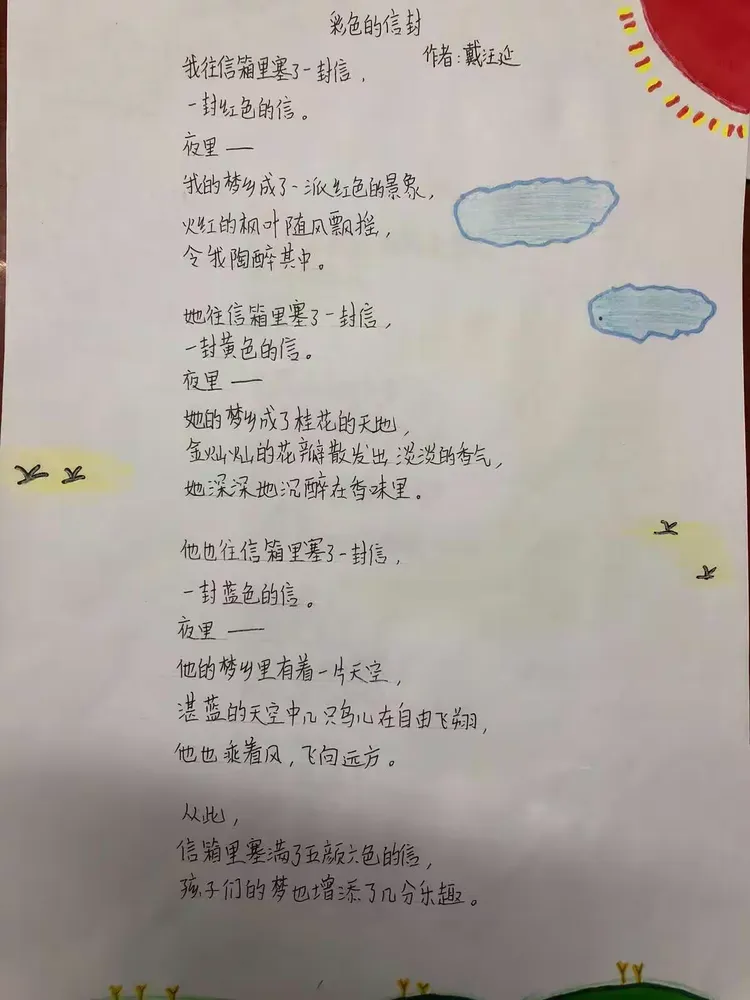 彩色的信封
作者:戴汪延
我往信箱里塞了一封信，
一封红色的信。
夜里——
我的梦乡成了一派红色的景象，
火红的枫叶随风飘摇，
令我陶醉其中。
她往信箱里塞了一封信，
一封黄色的信。
夜里——
她的梦乡成了桂花的天地，
金灿灿的花瓣散发出淡淡的香气，
她深深地沉醉在香味里。
他也往信箱里塞了一封信，
一封蓝色的信。
夜里——
他的梦乡里有着一片天空，
湛蓝的天空中几只鸟儿在自由飞翔，
他也乘着风，飞向远方。
从此，
信箱里塞满了五颜六色的信，
孩子们的梦也增添了几分乐趣。